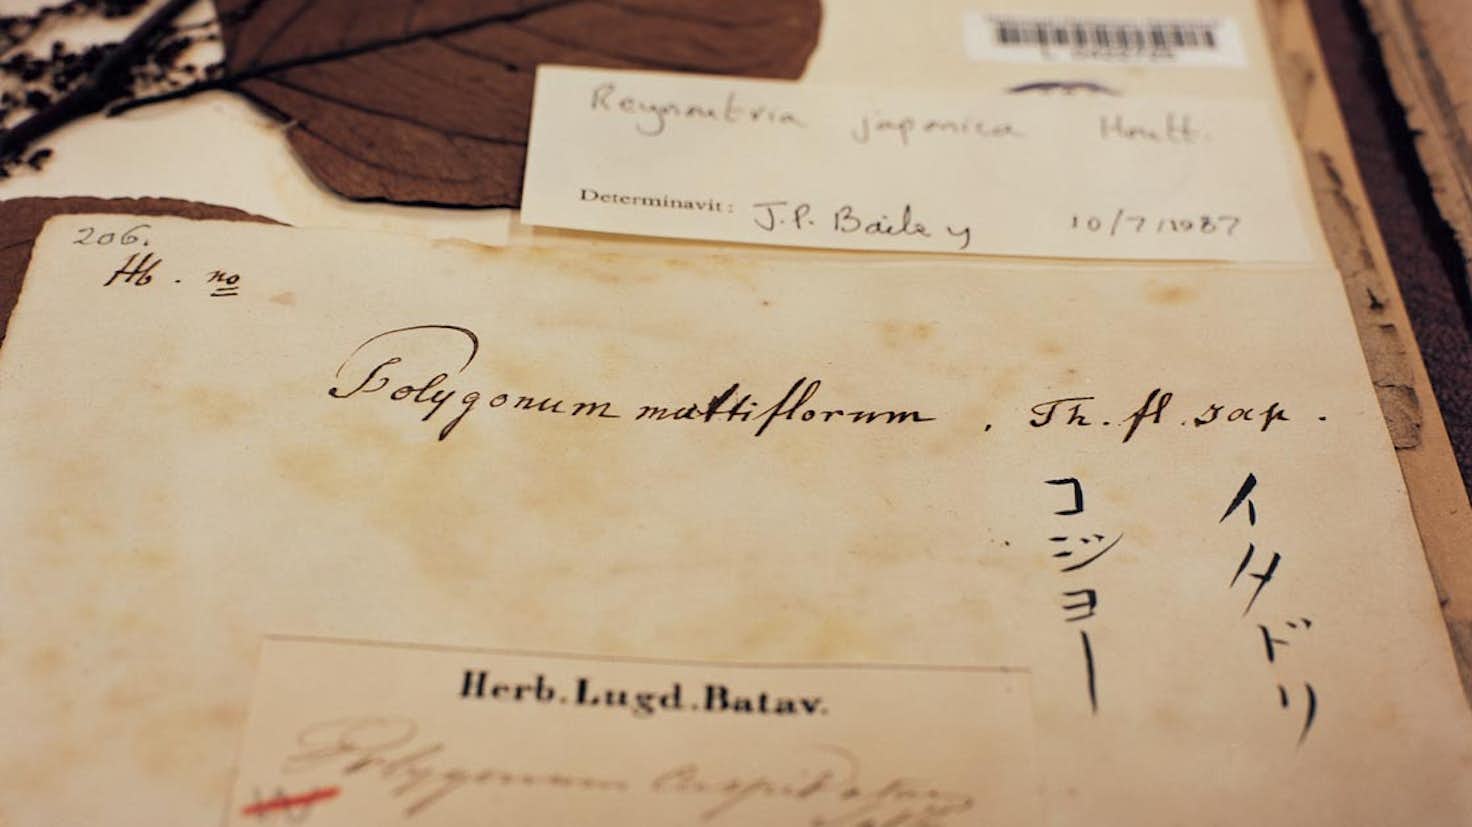 Reynoutria japonica Houtt.
Determinavit: J.P. Bailey 10/7/1987
206.
Hb. no
Polygonum multiflorum, Th. fl. Jap.
イタドリ
コジヨー
Herb.Lugd.Batav.
Polygonum cuspidatum